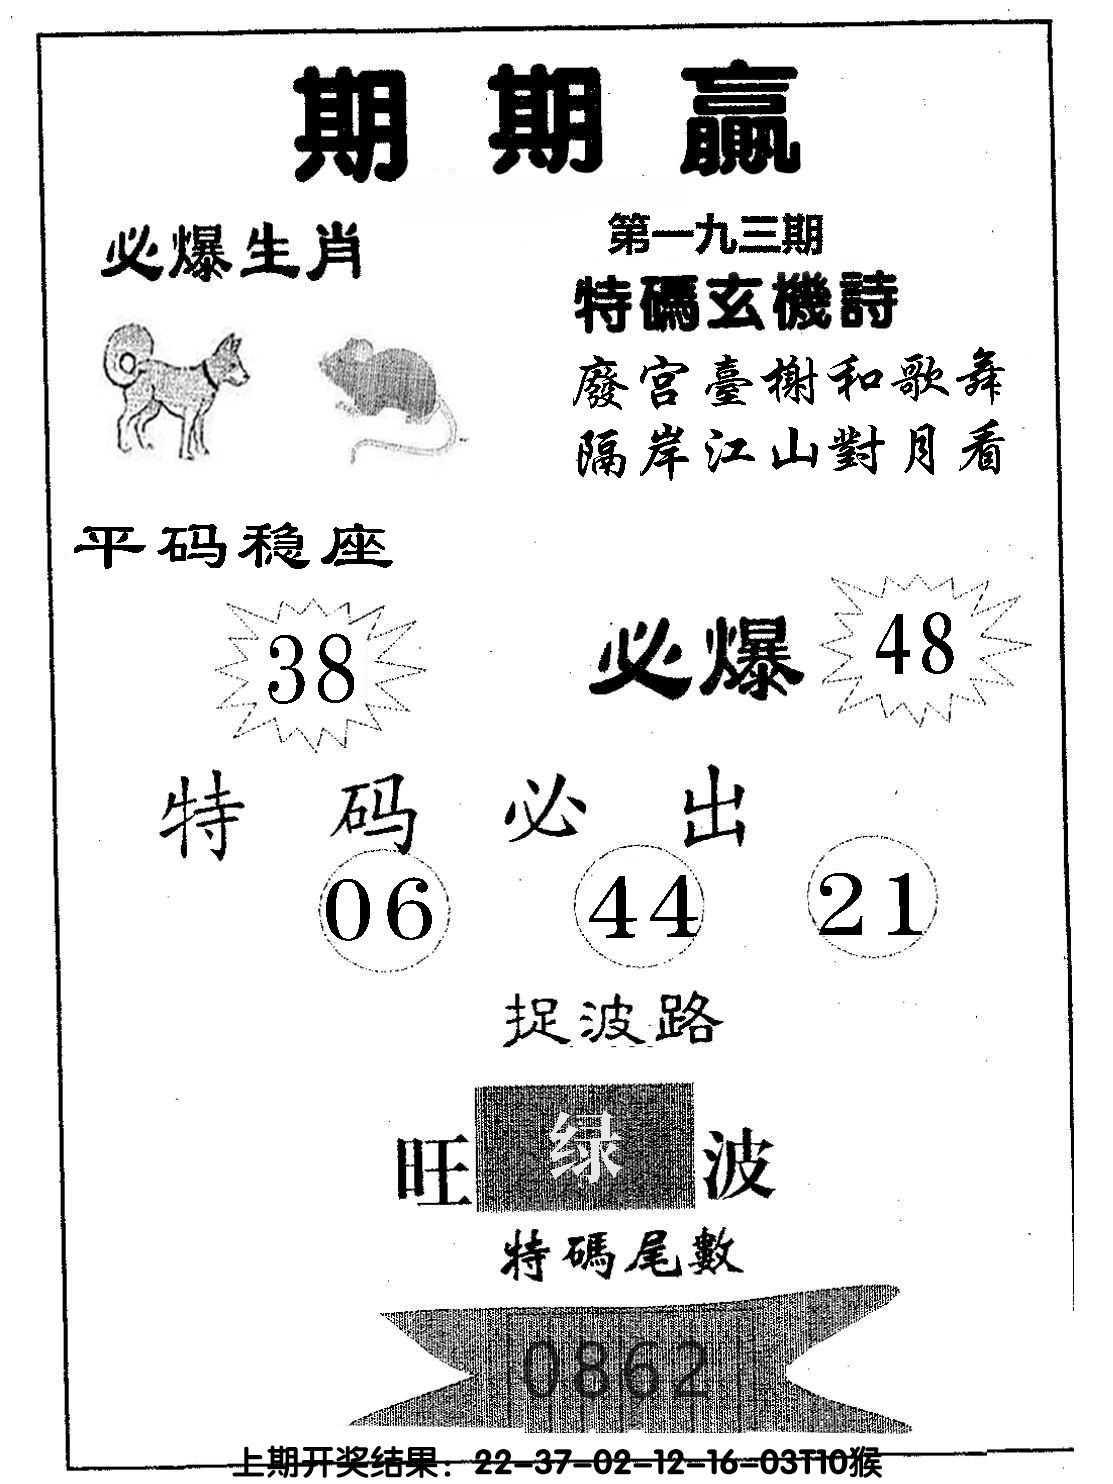 期期赢
必爆生肖
第一九三期
特碼玄機詩
廢宫臺榭和歌舞
隔岸江山對月看
平码稳座
38
必爆 48
特码必出
06 44 21
捉波路
旺 绿 波
特碼尾數
0862
上期开奖结果：22-37-02-12-16-03T10猴